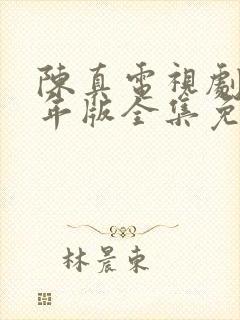 陳真電視劇
年版全集免
林晨東